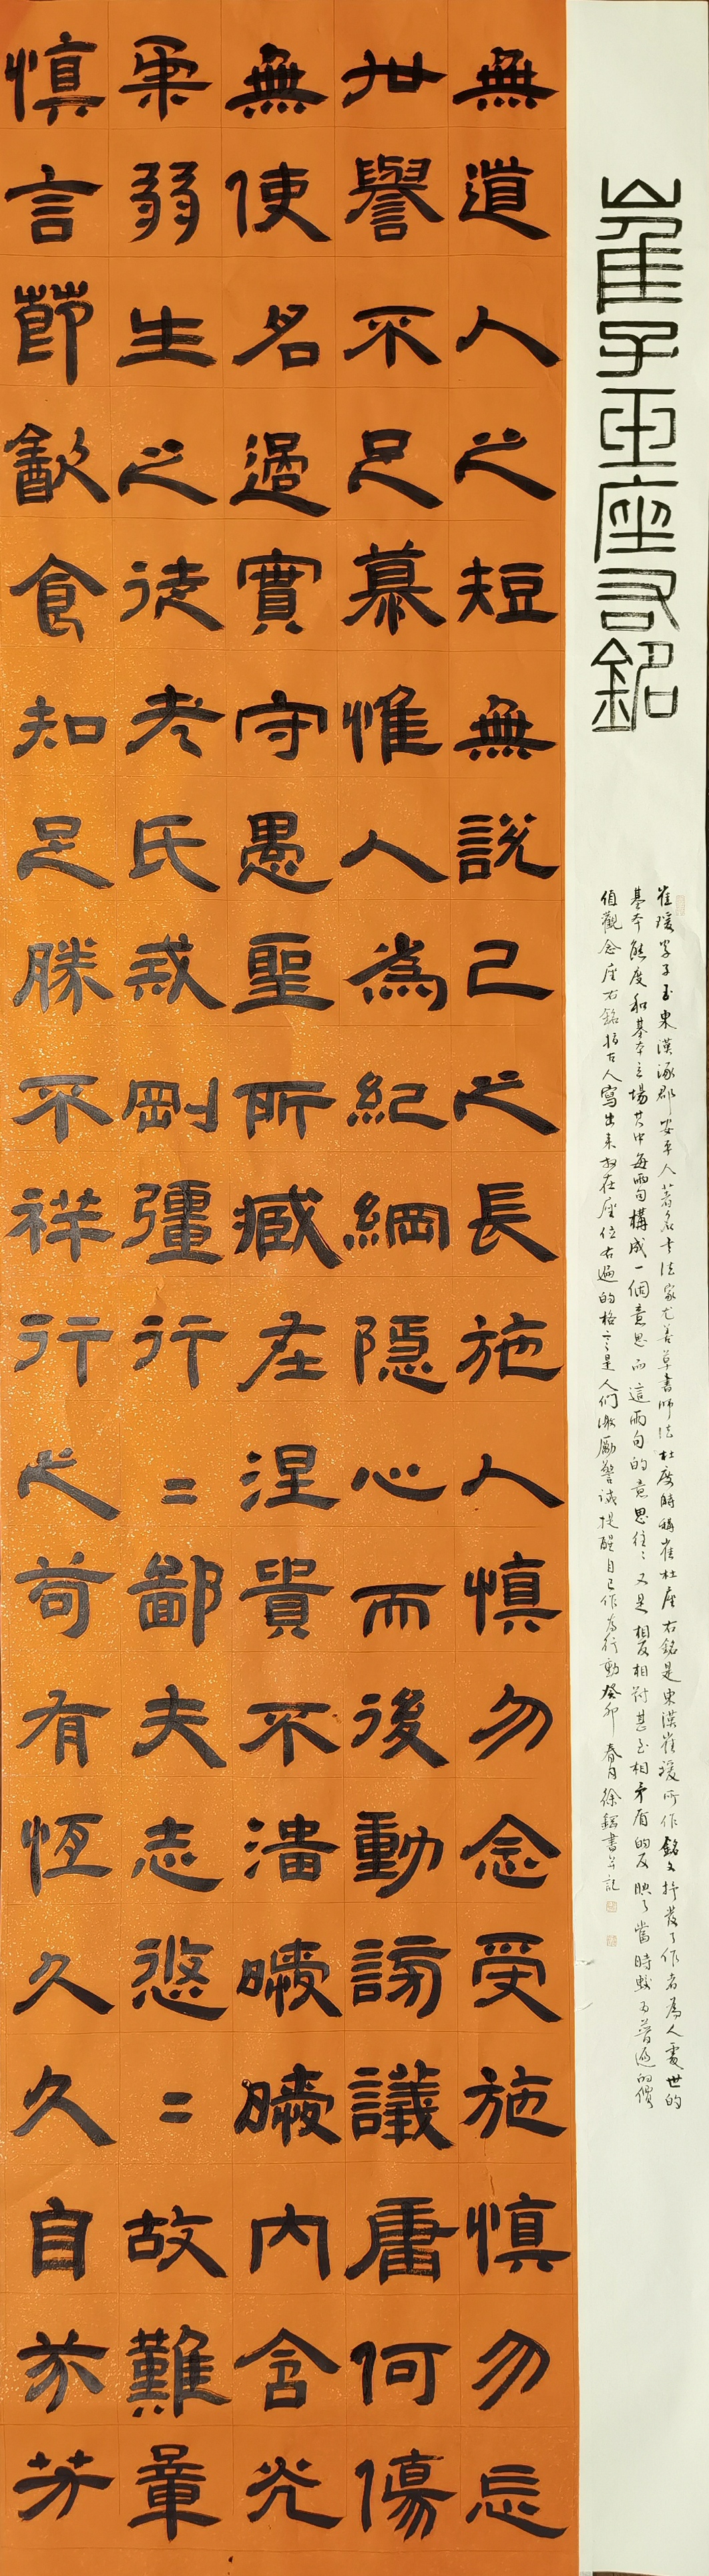 崔子玉座右銘
崔瑗字子玉東漢涿郡安平人著名書法家尤善草書師法杜度時稱崔杜座右銘是東漢崔瑗所作銘文抒發了作者為人處世的
基本態度和基本立場其中每兩句構成一個意思而這兩句的意思往〻又是相反相對甚至相矛盾的反映了當時較為普遍的價
值觀念座右銘指古人寫出來放在座位右邊的格言是人們激勵警誡提醒自己作為行動癸卯春月徐書並記
無道人之短無說己之長施人慎勿念受施慎勿忘
世譽不足慕惟人為紀綱隱心而後動謗議庸何傷
無使名過實守愚聖所臧在涅貴不淄曖曖內含光
柔弱生之徒老氏戒剛彊行〻鄙夫志悠〻故難量
慎言節飲食知足勝不祥行之苟有恆久久自芬芳